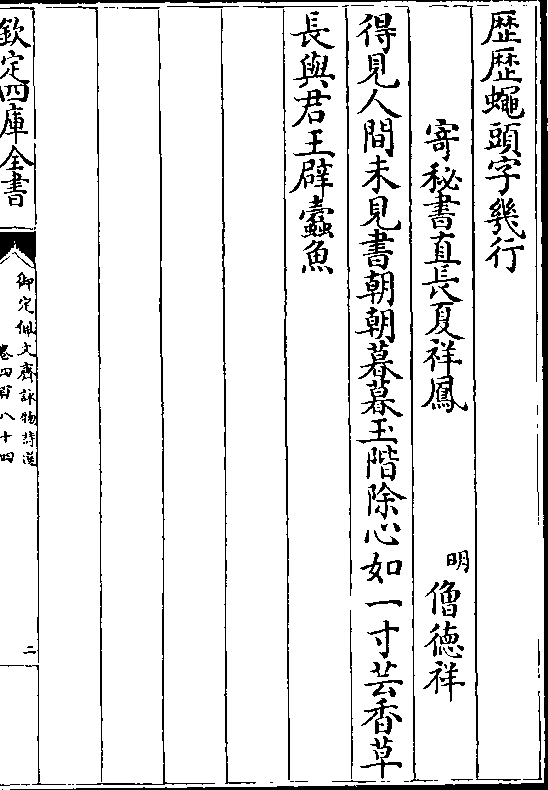 歴歴蠅頭字幾行
寄秘書直長夏祥鳳
明 僧徳祥
得見人間未見書朝朝暮暮玉階除心如一寸芸香草
長與君王辟蠹魚
欽定四庫全書
御定佩文齋詠物詩選
卷四百八十四
二